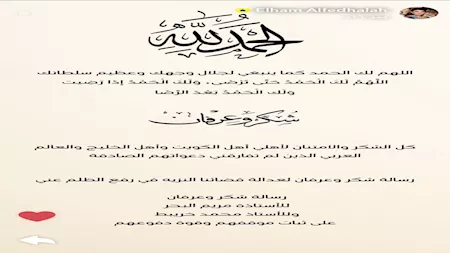 Elham Alfedhalah
الحمد لله
اللهم لك الحمد كما ينبغي لجلال وجهك وعظيم سلطانك
اللهُمّ لَكَ الْحَمْدُ حَتَّى تَرْضى، وَلَكَ الْحَمْدُ إِذَا رَضِيت
وَلَكَ الْحَمْدُ بَعْدَ الرِّضَا
شكر وعرفان
كل الشكر والامتنان لأهلي أهل الكويت وأهل الخليج والعالم
العربي الذين لم تفارقني دعواتهم الصادقة
رسالة شكر وعرفان لعدالة قضائنا النزيه في رفع الظلم عني
رسالة شكر وعرفان
للأستاذة مريم البحر
وللأستاذ محمد خريبط
على ثبات موقفهم وقوة دفوعهم